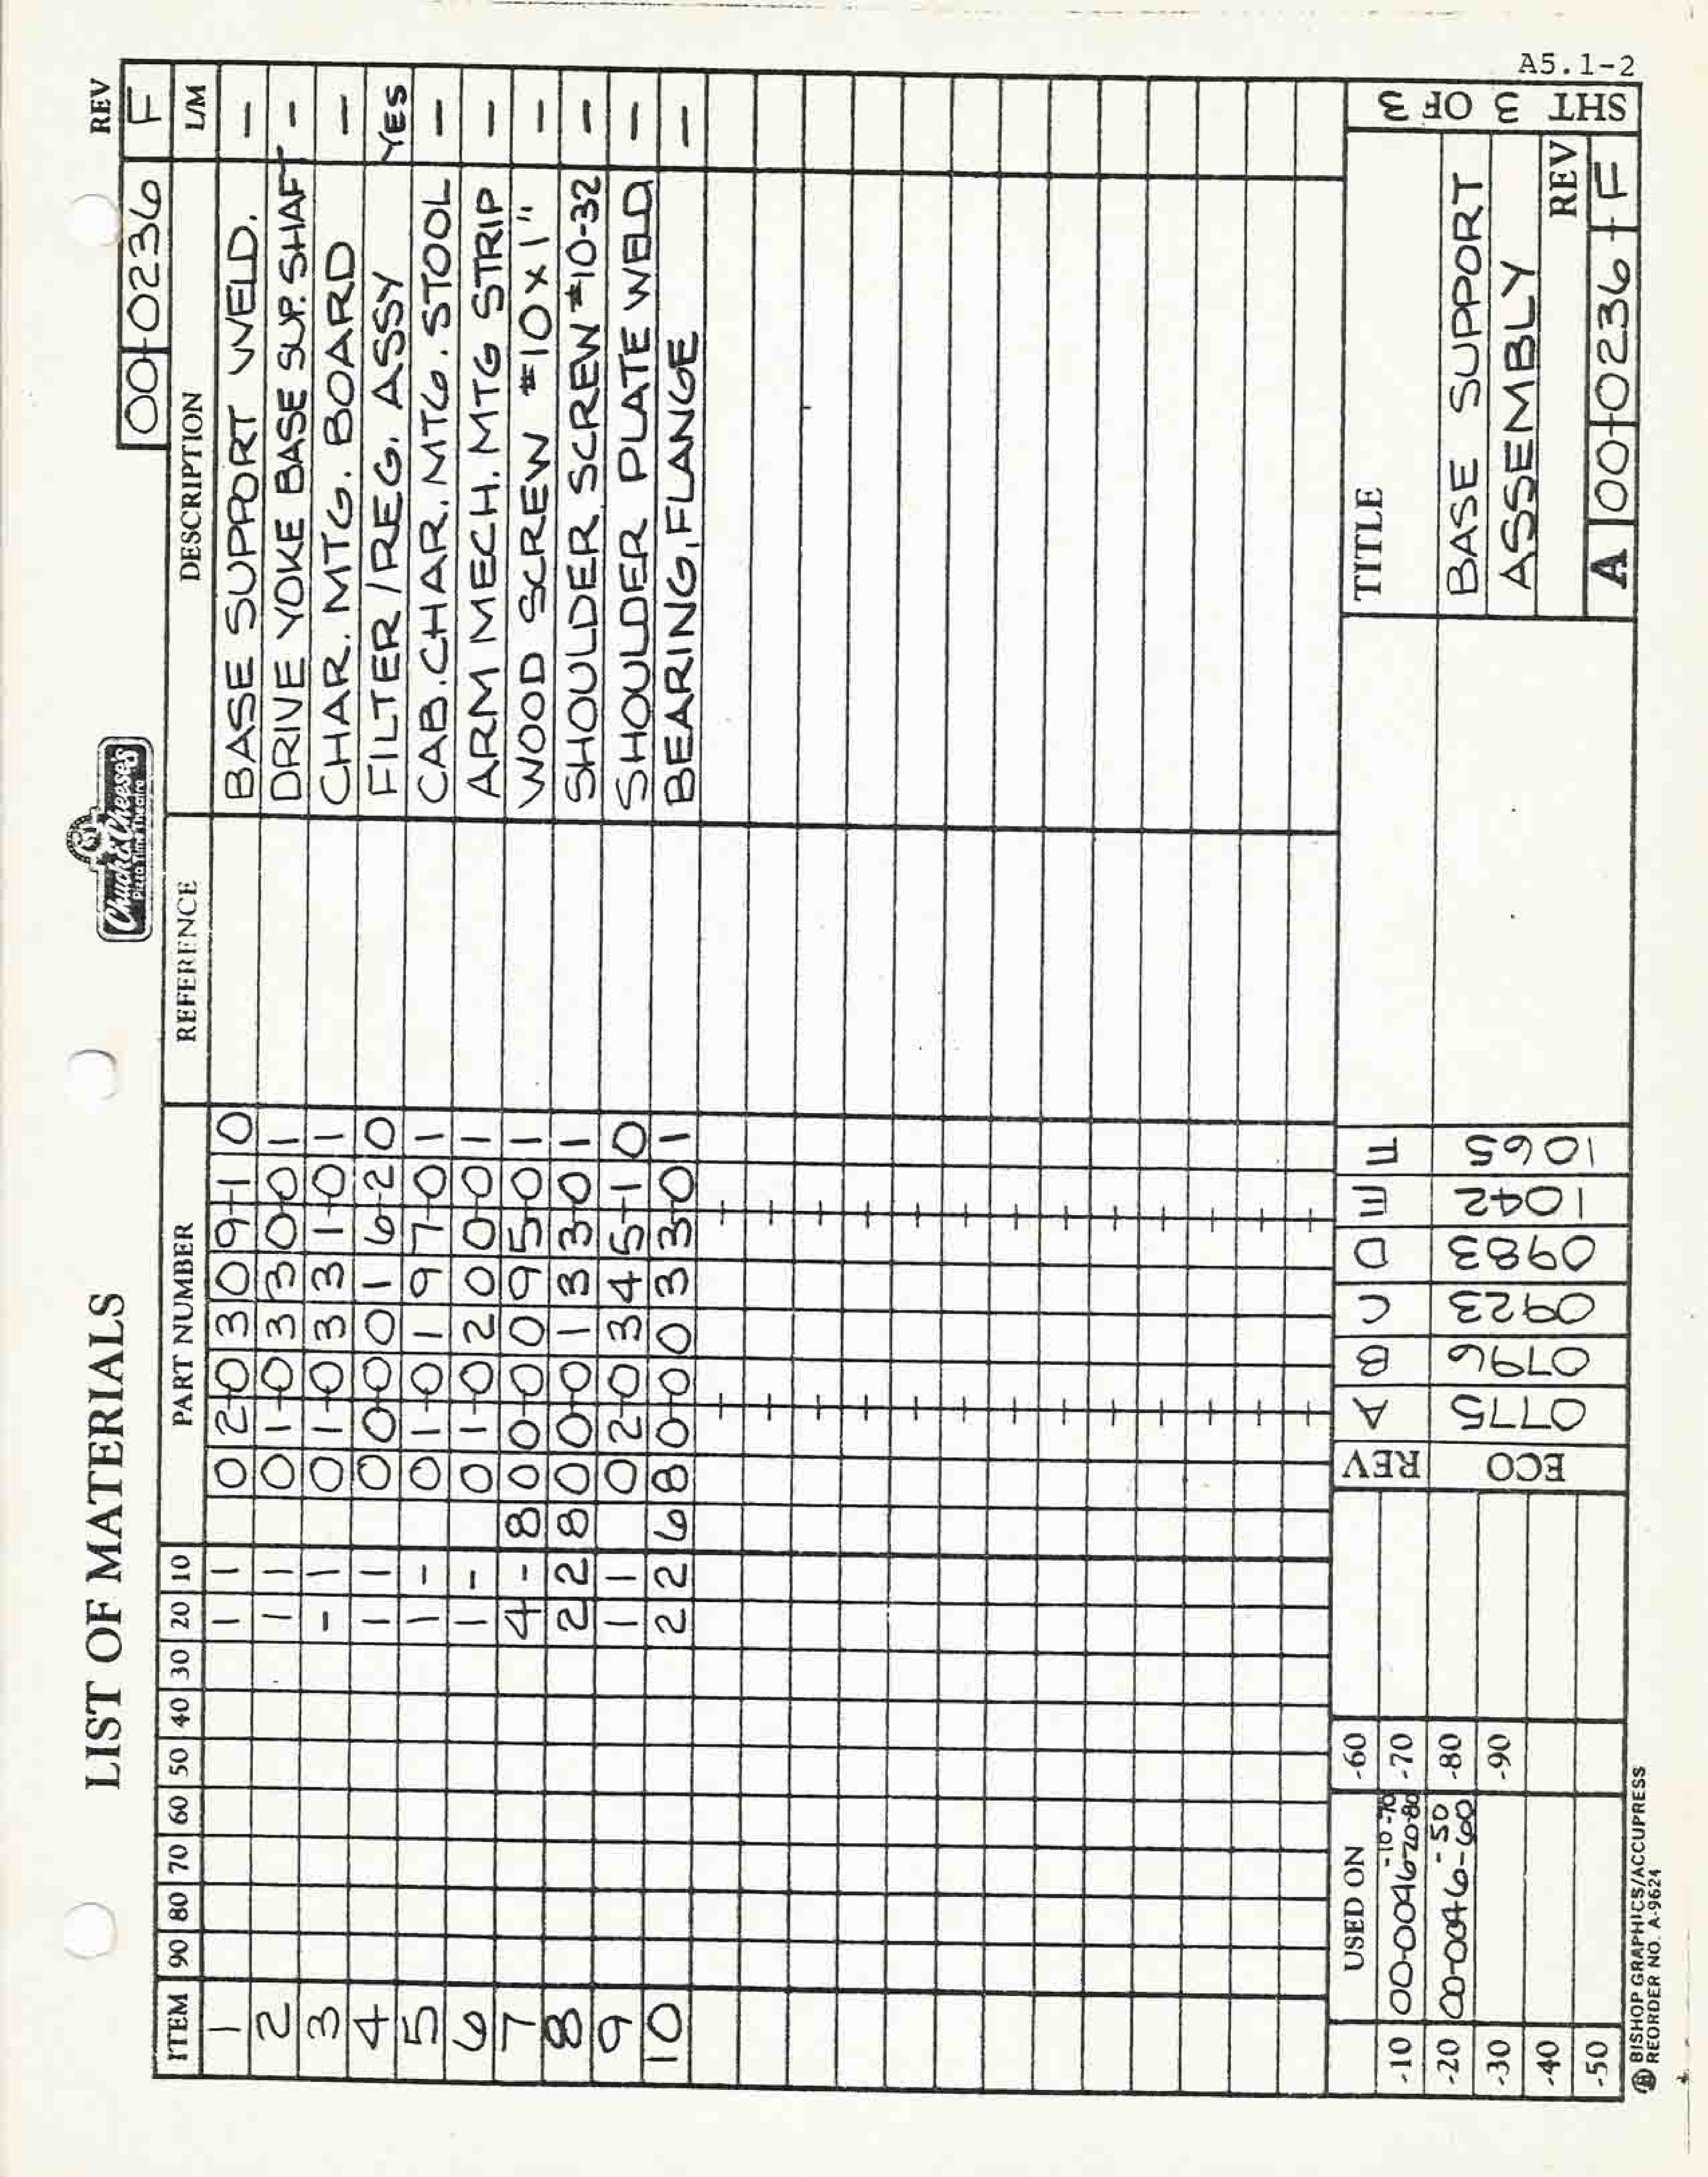 A5.1-2
LIST OF MATERIALS
Chuck E. Cheese's
Pizza Time Theatre
REV
00-0236 F
ITEM 90 80 70 60 50 40 30 20 10 PART NUMBER REFERENCE DESCRIPTION L/M
1 1 1 02-0309-10 BASE SUPPORT WELD. —
2 1 1 01-0330-01 DRIVE YOKE BASE SUP. SHAFT —
3 - 1 01-0331-01 CHAR. MTG. BOARD —
4 1 1 00-0016-20 FILTER/REG. ASSY YES
5 1 - 01-0197-01 CAB. CHAR. MTG. STOOL —
6 1 - 01-0200-01 ARM MECH. MTG STRIP —
7 4 - 800-0095-01 WOOD SCREW #10 X 1" —
8 2 2 800-0133-01 SHOULDER SCREW #10-32 —
9 1 1 02-0345-10 SHOULDER PLATE WELD —
10 2 2 680-0033-01 BEARING, FLANGE —
USED ON
-10 00-0046-10-70 20-80
-20 00-0046-50 -60
-30
-40
-50
-60
-70
-80
-90
REV A B C D E F
ECO 0775 0796 0923 0983 1042 1065
TITLE
BASE SUPPORT
ASSEMBLY
REV
A 00-0236-F
SHT 3 OF 3
BISHOP GRAPHICS/ACCUPRESS
REORDER NO. A-9624